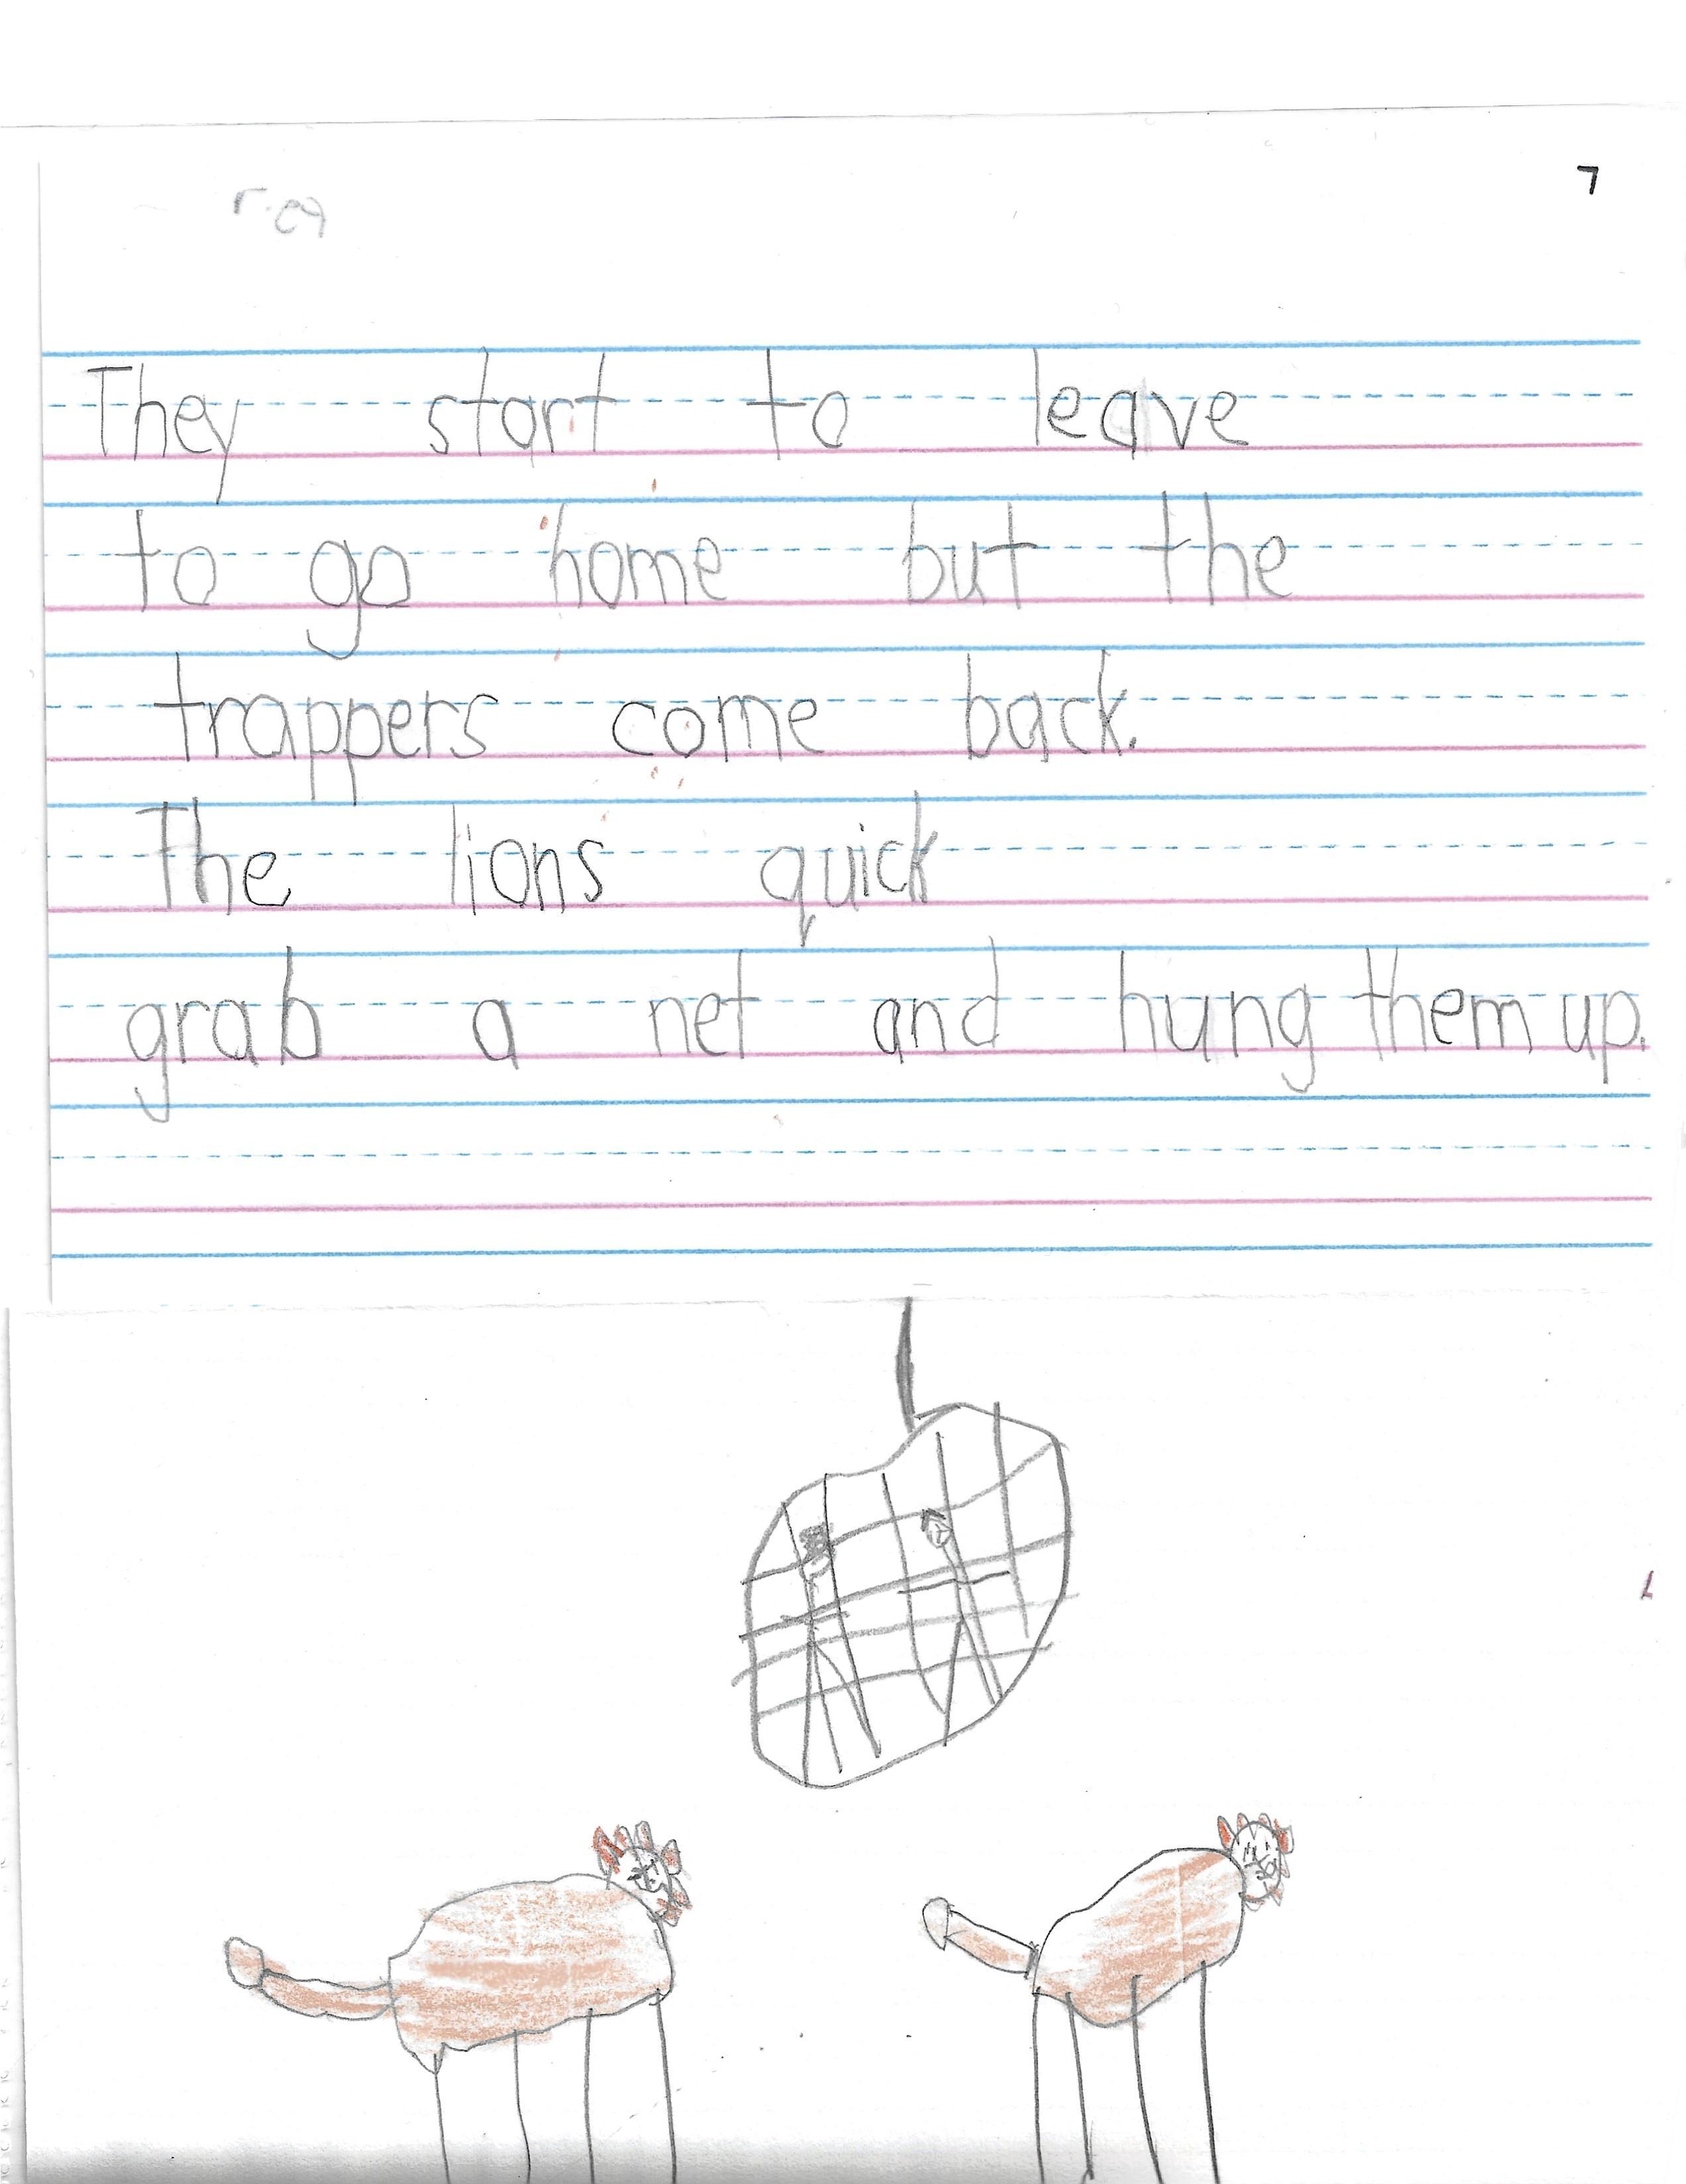 7
They start to leave
to go home but the
trappers come back.
The lions quick
grab a net and hung them up.